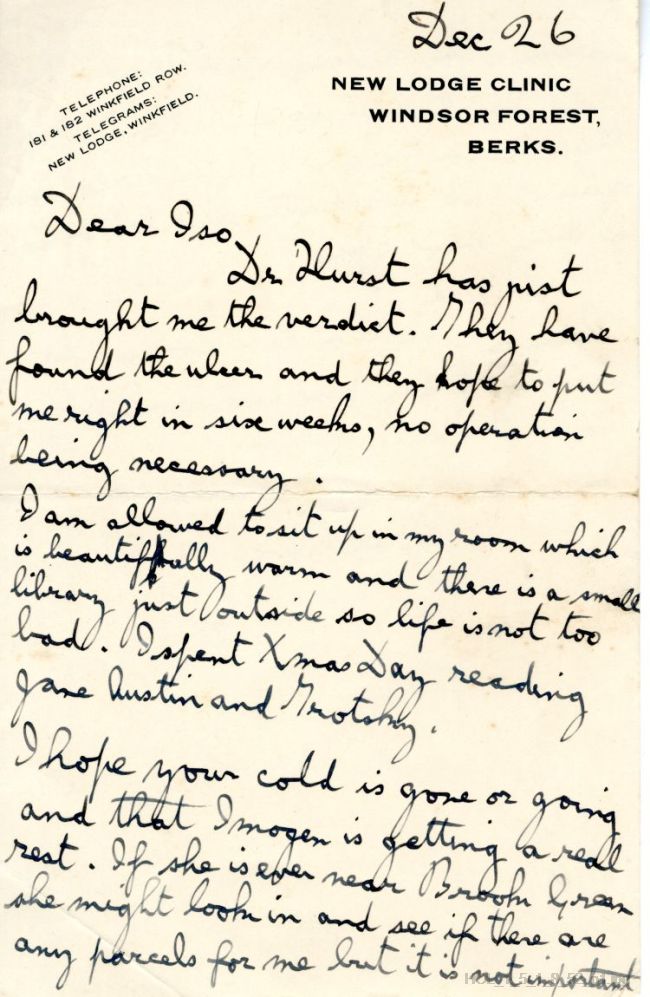 Dec 26
TELEPHONE:
181 & 182 WINKFIELD ROW.
TELEGRAMS:
NEW LODGE, WINKFIELD.
NEW LODGE CLINIC
WINDSOR FOREST,
BERKS.
Dear Iso,
Dr. Hurst has just
brought me the verdict. They have
found the ulcer and they hope to put
me right in six weeks, no operation
being necessary.
I am allowed to sit up in my room which
is beautifully warm and there is a small
library just outside so life is not too
bad. I spent Xmas Day reading
Jane Austin and Trotsky.
I hope your cold is gone or going
and that Imogen is getting a real
rest. If she is ever near Brook Green
she might look in and see if there are
any parcels for me but it is not important